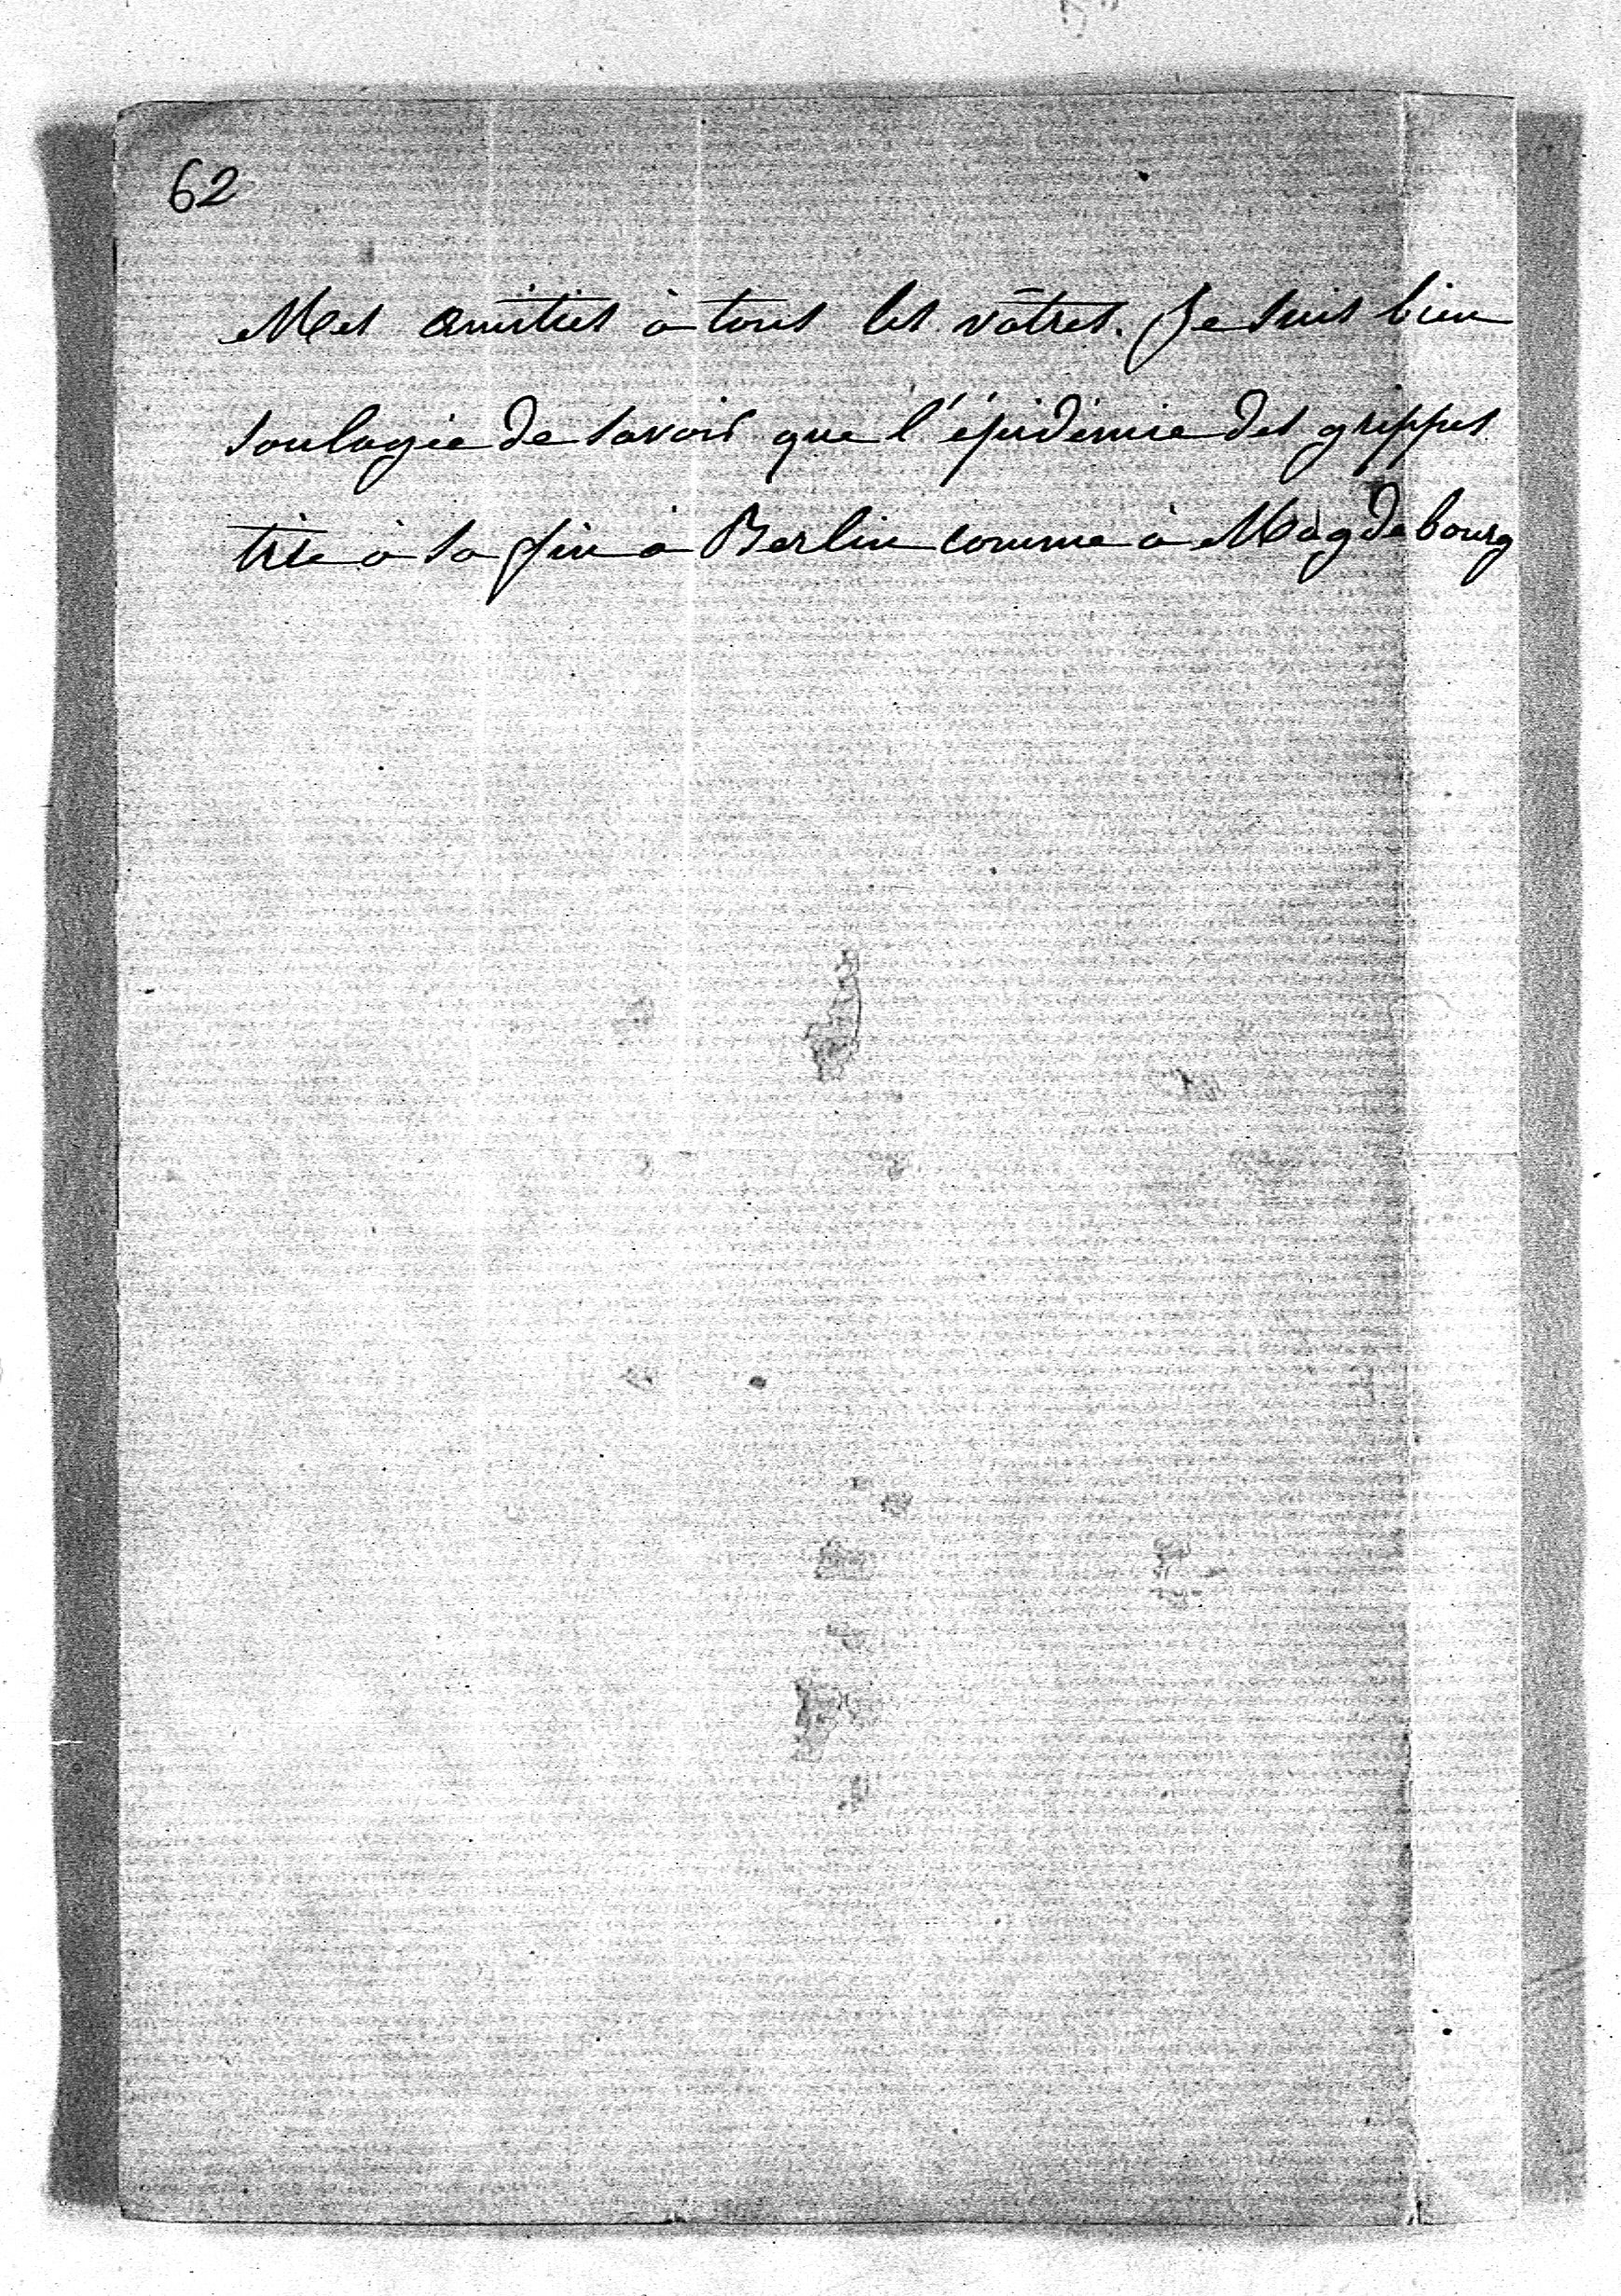 62
Mes amitiés à tous les vôtres. Je suis bien
soulagée de savoir que l'épidémie des grippes
tire à sa fin à Berlin comme à Magdebourg